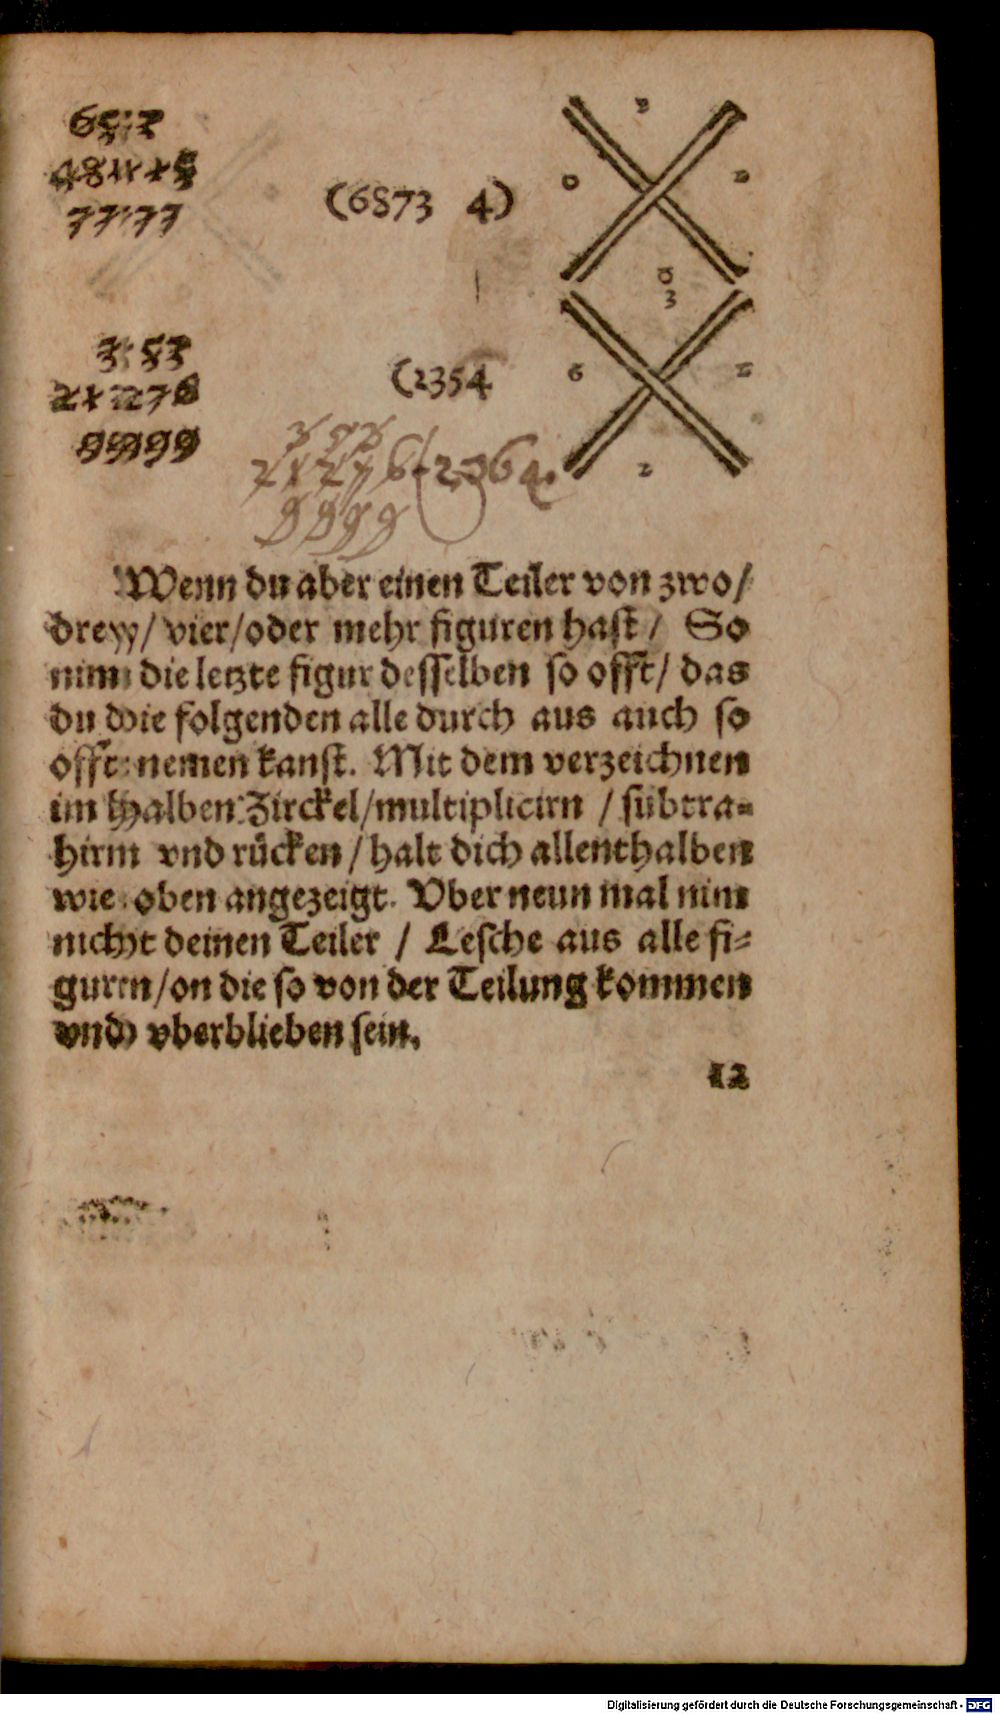 (6873 4)
(2354
Wenn du aber einen Teiler von zwo/
drey/ vier/oder mehr figuren hast/ So
nim die letzte figur desselben so offt/ das
du die folgenden alle durch aus auch so
offt nemen kanst. Mit dem verzeichnen
im halben Zirckel/multiplicirn / subtra-
hirn vnd rücken / halt dich allenthalben
wie oben angezeigt. Vber neun mal nim
nicht deinen Teiler / Lesche aus alle fi-
guren/on die so von der Teilung kommen
vnd vberblieben sein.
12
Digitalisierung gefördert durch die Deutsche Forschungsgemeinschaft - DFG